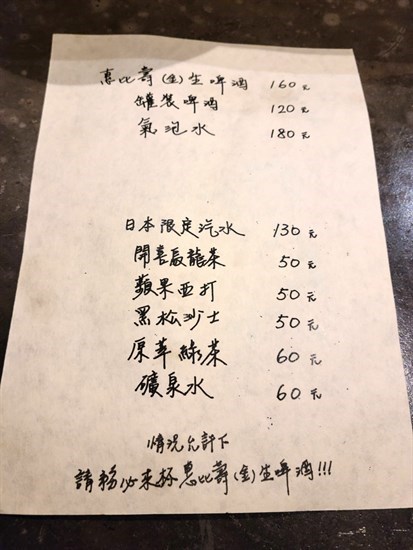 惠比壽(金)生啤酒 160元
罐裝啤酒 120元
氣泡水 180元
日本限定汽水 130元
開喜烏龍茶 50元
蘋果西打 50元
黑松沙士 50元
原萃綠茶 60元
礦泉水 60元
情況允許下
請務必來杯惠比壽(金)生啤酒!!!